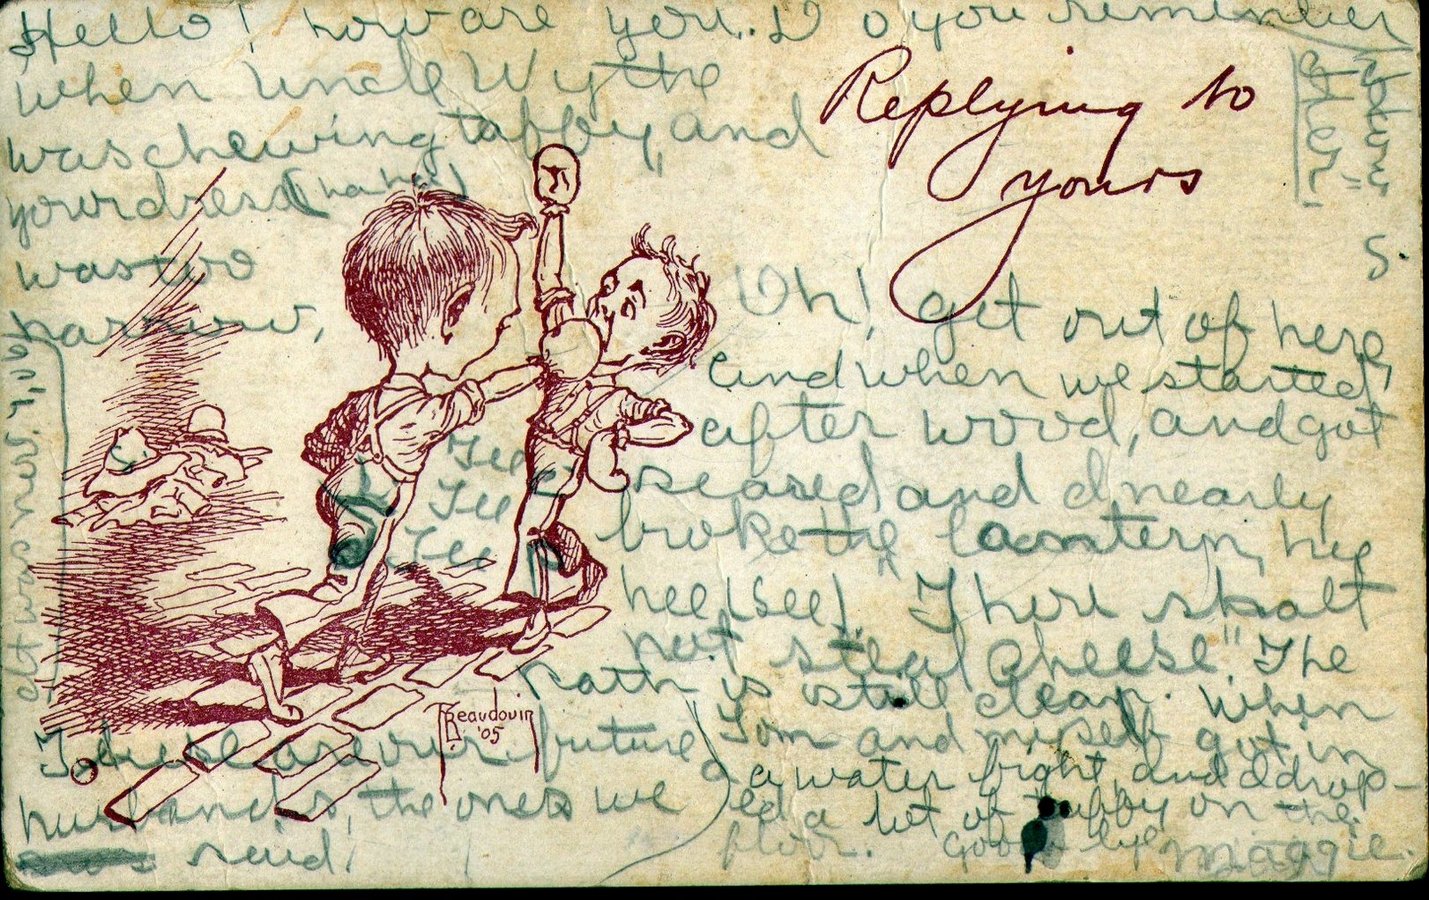 Hello! how are you. Do you remember
when Uncle Wythe
was chewing tabby, and
your dress (ha ha!)
was too
narrow,
Replying to
yours
Oh! get out of here,
And when we started
after wood, and got
scared and I nearly
broke the lantern, hee
hee (See). "Thou shalt
not steal cheese". The
path is still clear. When
Tom and myself got in
a water fight, and I drop-
ed a lot of tubby on the
floor. Good bye Maggie.
Tee
Tee
Tee
Beaudouin
'05
These are our future
husbands, the ones we
said.
It was nov. 7, '06
S.